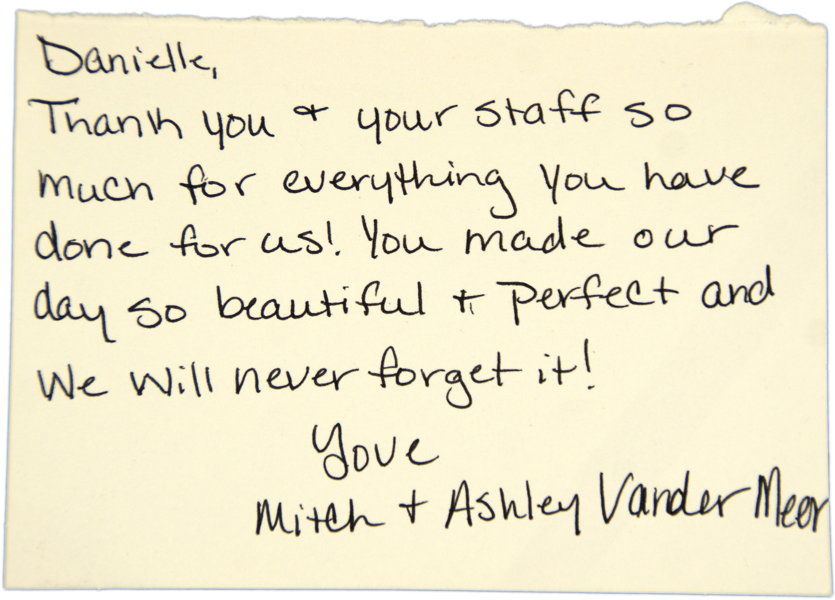 Danielle,
Thank you + your staff so
much for everything you have
done for us! You made our
day so beautiful + perfect and
We will never forget it!
Love
Mitch + Ashley Vander Meer